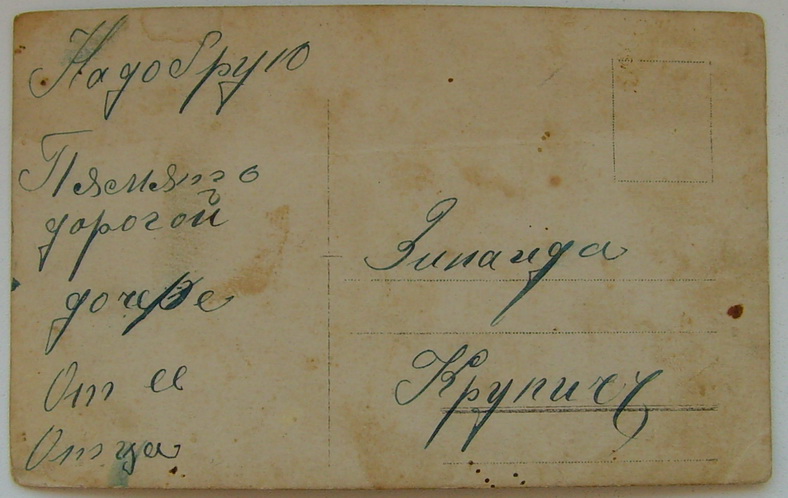 Надобрую
Пямято
дорогой
дочере
От ее
Отца
Зинаида
Крупич